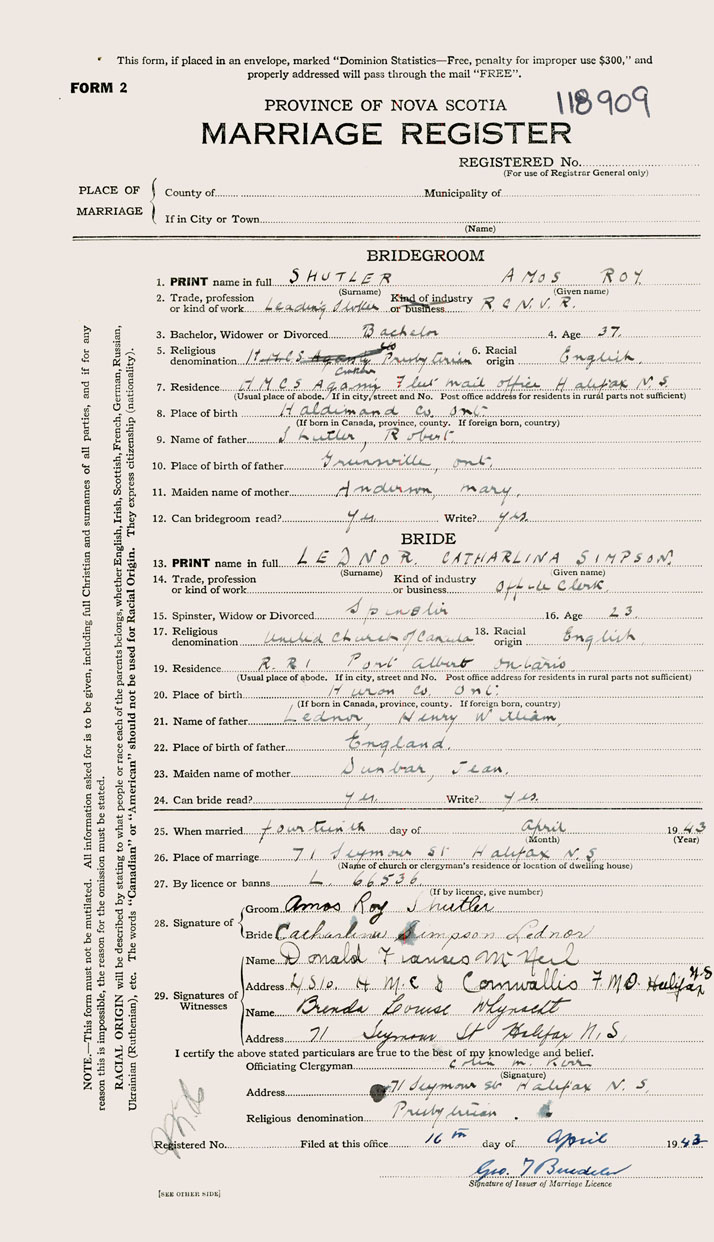 This form, if placed in an envelope, marked "Dominion Statistics—Free, penalty for improper use $300," and
properly addressed will pass through the mail "FREE".
FORM 2
118909
PROVINCE OF NOVA SCOTIA
MARRIAGE REGISTER
REGISTERED No.
(For use of Registrar General only)
PLACE OF MARRIAGE
County of Municipality of
If in City or Town
(Name)
BRIDEGROOM
1. PRINT name in full SHUTLER AMOS ROY
(Surname) (Given name)
2. Trade, profession or kind of work Leading Stoker Kind of industry or business R.C.N.V.R.
3. Bachelor, Widower or Divorced Bachelor 4. Age 37.
5. Religious denomination H.M.C.S. Presbyterian 6. Racial origin English
7. Residence H M C S Agassiz Fleet mail office Halifax N.S.
(Usual place of abode. If in city, street and No. Post office address for residents in rural parts not sufficient)
8. Place of birth Haldimand Co. Ont.
(If born in Canada, province, county. If foreign born, country)
9. Name of father Shutler, Robert
10. Place of birth of father ont.
11. Maiden name of mother Anderson, mary.
12. Can bridegroom read? Yes. Write? yes.
BRIDE
13. PRINT name in full LEDNOR. CATHARLINA SIMPSON.
(Surname) (Given name)
14. Trade, profession or kind of work Kind of industry or business Office Clerk.
15. Spinster, Widow or Divorced Spinster 16. Age 23.
17. Religious denomination United Church of Canada 18. Racial origin English
19. Residence R.R.1 Port Albert Ontario
(Usual place of abode. If in city, street and No. Post office address for residents in rural parts not sufficient)
20. Place of birth Huron Co. Ont.
(If born in Canada, province, county. If foreign born, country)
21. Name of father Lednor, Henry William,
22. Place of birth of father England.
23. Maiden name of mother Dunbar, Jean.
24. Can bride read? Yes. Write? Yes.
25. When married fourteenth day of April 1943
(Month) (Year)
26. Place of marriage 71 Seymour St Halifax N.S.
(Name of church or clergyman's residence or location of dwelling house)
27. By licence or banns L. 66536
(If by licence, give number)
28. Signature of
Groom Amos Roy Shutler
Bride Catharlina Simpson Lednor
29. Signatures of Witnesses
Name Donald Francis McNeil
Address H M C S Cornwallis F.M.O. Halifax N.S
Name Brenda Louise Whynacht
Address 71 Seymour St Halifax N.S.
I certify the above stated particulars are true to the best of my knowledge and belief.
Officiating Clergyman Colin M. Kerr
(Signature)
Address 71 Seymour St Halifax N.S.
Religious denomination Presbyterian.
Registered No. Filed at this office 16th day of April 1943
Geo.
Signature of Issuer of Marriage Licence
[SEE OTHER SIDE]
NOTE.—This form must not be mutilated. All information asked for is to be given, including full Christian and surnames of all parties, and if for any
reason this is impossible, the reason for the omission must be stated.
RACIAL ORIGIN will be described by stating to what people or race each of the parents belongs, whether English, Irish, Scottish, French, German, Russian,
Ukrainian (Ruthenian), etc. The words "Canadian" or "American" should not be used for Racial Origin. They express citizenship (nationality).